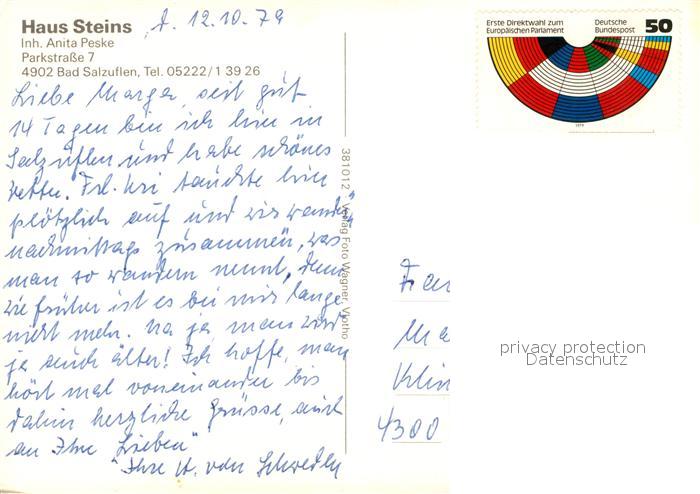 Haus Steins
Inh. Anita Peske
Parkstraße 7
4902 Bad Salzuflen, Tel. 05222/1 39 26
d. 12.10.79
Liebe Marga, seit gut
14 Tagen bin ich hier in
Salzuflen und habe schönes
Wetter. Frl. tauchte hier
plötzlich auf und wir "wandern"
nachmittags zusammen, was
man so wandern nennt, denn
wie früher ist es bei mir lange
nicht mehr. Na ja, man wird
ja auch älter! Ich hoffe, man
hört mal voneinander bis
dahin herzliche Grüsse, auch
an Ihre "Lieben"
Ihre H. von
381012 Verlag Foto Wagner, Vlotho
Erste Direktwahl zum
Europäischen Parlament
Deutsche
Bundespost
50
1979
Ma
Klin
4300
privacy protection
Datenschutz